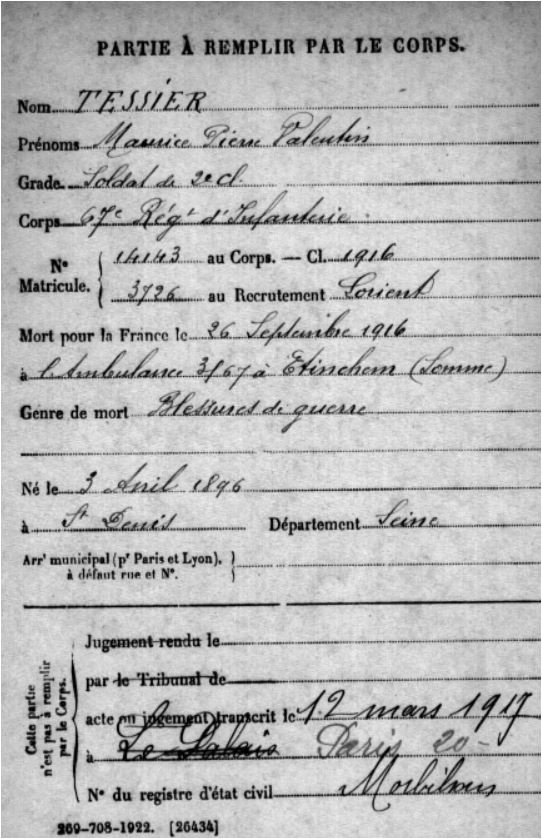 PARTIE À REMPLIR PAR LE CORPS.
Nom TESSIER
Prénoms Maurice Pierre Valentin
Grade Soldat de 2e cl.
Corps 67e Régt d'Infanterie.
No Matricule. 14143 au Corps. — Cl. 1916
3726 au Recrutement Lorient
Mort pour la France le 26 Septembre 1916
à l'Ambulance 3/67 à Etinchem (Somme)
Genre de mort Blessures de guerre
Né le 3 Avril 1896
à St Denis Département Seine
Arrt municipal (pr Paris et Lyon),
à défaut rue et No.
Cette partie
n'est pas à remplir
par le Corps.
Jugement rendu le
par le Tribunal de
acte ou jugement transcrit le 12 mars 1917
à Le Palais Paris 20-
No du registre d'état civil Morbihan
269-708-1922. [26434]